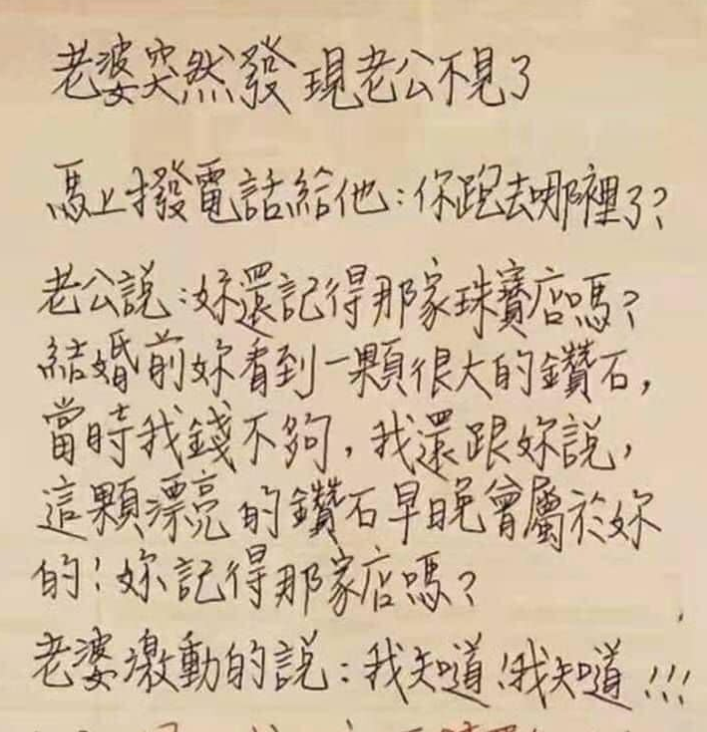 老婆突然發現老公不見了
馬上撥電話給他：你跑去哪裡了？
老公說：妳還記得那家珠寶店嗎？
結婚前妳看到一顆很大的鑽石，
當時我錢不夠，我還跟妳說，
這顆漂亮的鑽石早晚會屬於妳
的！妳記得那家店嗎？
老婆激動的說：我知道！我知道!!!